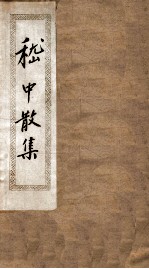 嵇中散集